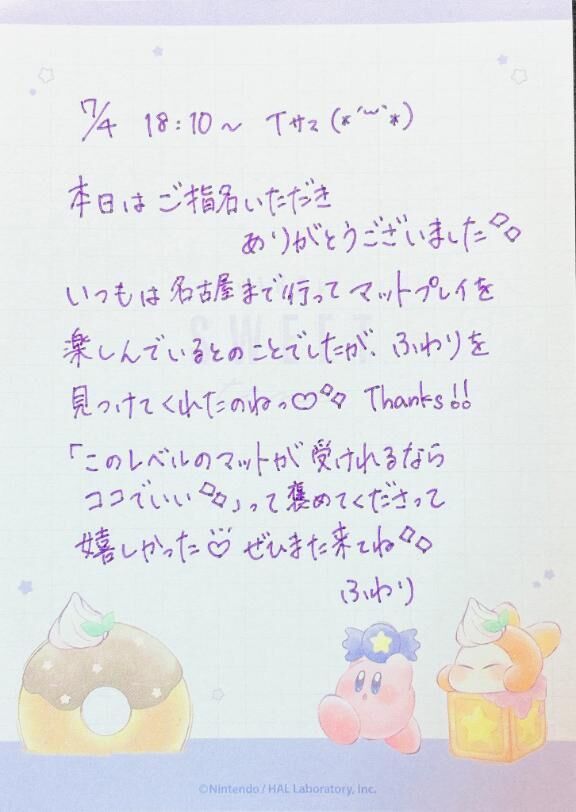 7/4 18:10～ Tサマ(*´︶`*)
本日はご指名いただき
ありがとうございました
いつもは名古屋まで行ってマットプレイを
楽しんでいるとのことでしたが、ふわりを
見つけてくれたのねっ♡ Thanks!!
「このレベルのマットが受けれるなら
ココでいい」って褒めてくださって
嬉しかった♡ ぜひまた来てね
ふわり
SWEET
©Nintendo / HAL Laboratory, Inc.